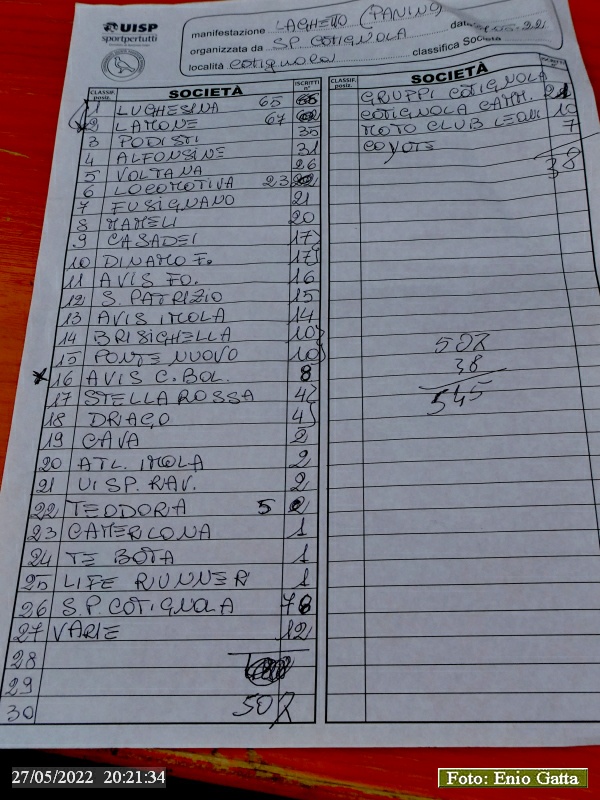 UISP
sportpertutti
manifestazione LAGHETTO (PANINO)
organizzata da S.P. COTIGNOLA data 22
località COTIGNOLA classifica Società
CLASSIF. posiz. SOCIETÀ ISCRITTI n°
1 LUGHESINA 65
2 LAMONE 67
3 PODISTI 35
4 ALFONSINE 31
5 VOLTANA 26
6 LOCOMOTIVA 23
7 FUSIGNANO 21
8 MAMELI 20
9 CASADEI 17
10 DINAMO F. 17
11 AVIS FO. 16
12 S. PATRIZIO 15
13 AVIS IMOLA 14
14 BRISIGHELLA 10
15 PONTE NUOVO 10
16 AVIS C. BOL. 8
17 STELLA ROSSA 4
18 DRAGO 4
19 CAVA 2
20 ATL. IMOLA 2
21 UISP RAV. 2
22 TEODORA 5
23 CAMERLONA 1
24 TE BOTA 1
25 LIFE RUNNER 1
26 S.P. COTIGNOLA 78
27 VARIE 12
28
29
30 507
CLASSIF. posiz. SOCIETÀ
GRUPPI COTIGNOLA
COTIGNOLA CAMM. 10
MOTO CLUB LEONI 7
COYOTE
38
507
38
545
27/05/2022 20:21:34
Foto: Enio Gatta